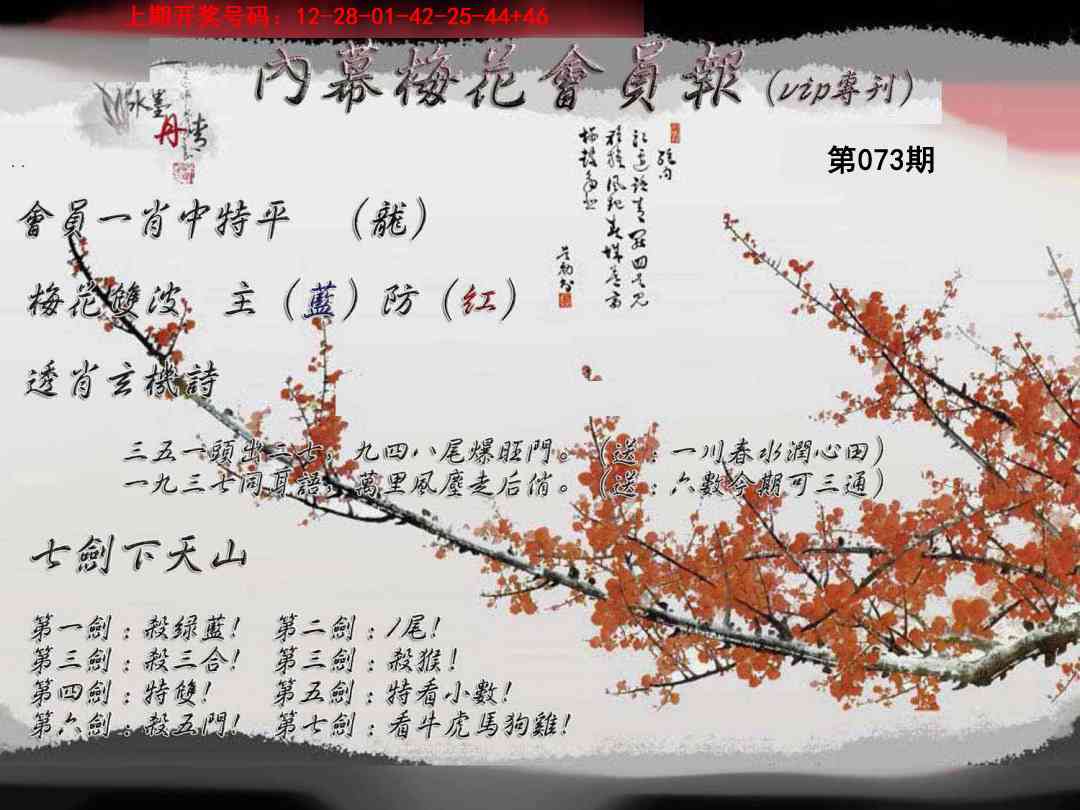 上期开奖号码：12-28-01-42-25-44+46
內幕梅花會員報(vip專刊)
水墨
丹青
第073期
會員一肖中特平 （龍）
梅花雙波 主（藍）防（红）
透肖玄機詩
三五一頭出二七，九四八尾爆旺門。（送：一川春水潤心田）
一九三七同耳語，萬里風塵走后俏。（送：六數今期可三通）
七劍下天山
第一劍：殺绿藍！ 第二劍：1尾！
第三劍：殺三合！ 第三劍：殺猴！
第四劍：特雙！ 第五劍：特看小數！
第六劍：殺五門！ 第七劍：看牛虎馬狗雞！